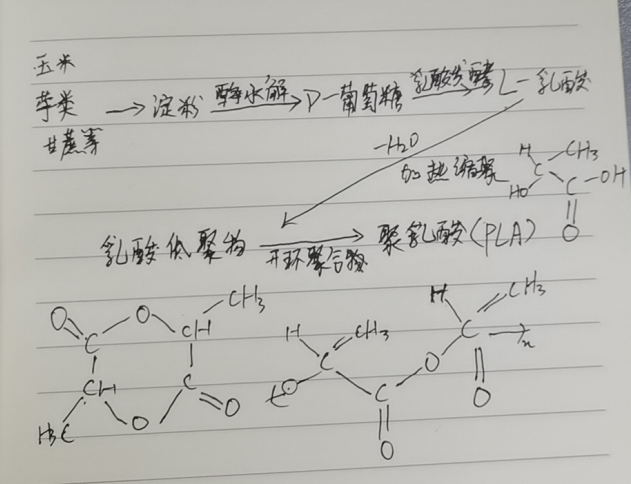 玉米
芋类 → 淀粉 酶水解 → D-葡萄糖 乳酸发酵 → L-乳酸
甘蔗等
-H2O
加热缩聚
H CH3
C
HO C-OH
O
乳酸低聚物 开环聚合物 → 聚乳酸(PLA)
CH3 H CH3
O O CH H CH3 C
C C O n
CH C O C O
H3C O O